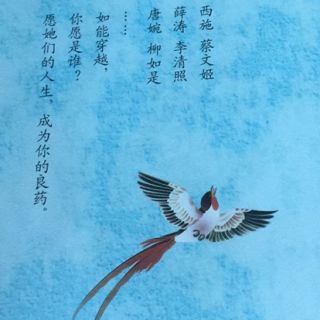 西施 蔡文姬
薛涛 李清照
唐婉 柳如是
……
如能穿越，
你愿是谁？
愿她们的人生，成为你的良药。